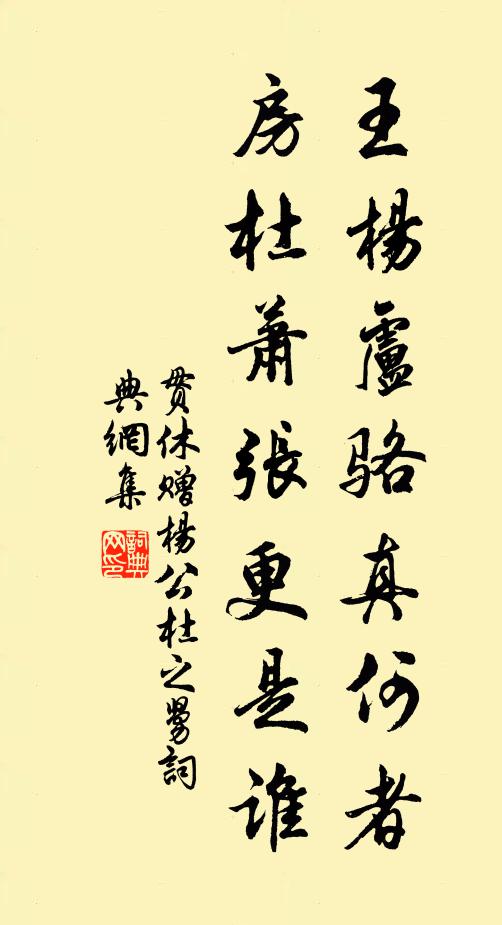 王楊盧骆真何者
房杜蕭張更是誰
贯休赠楊公杜之舅詞
典網集
詞典网印